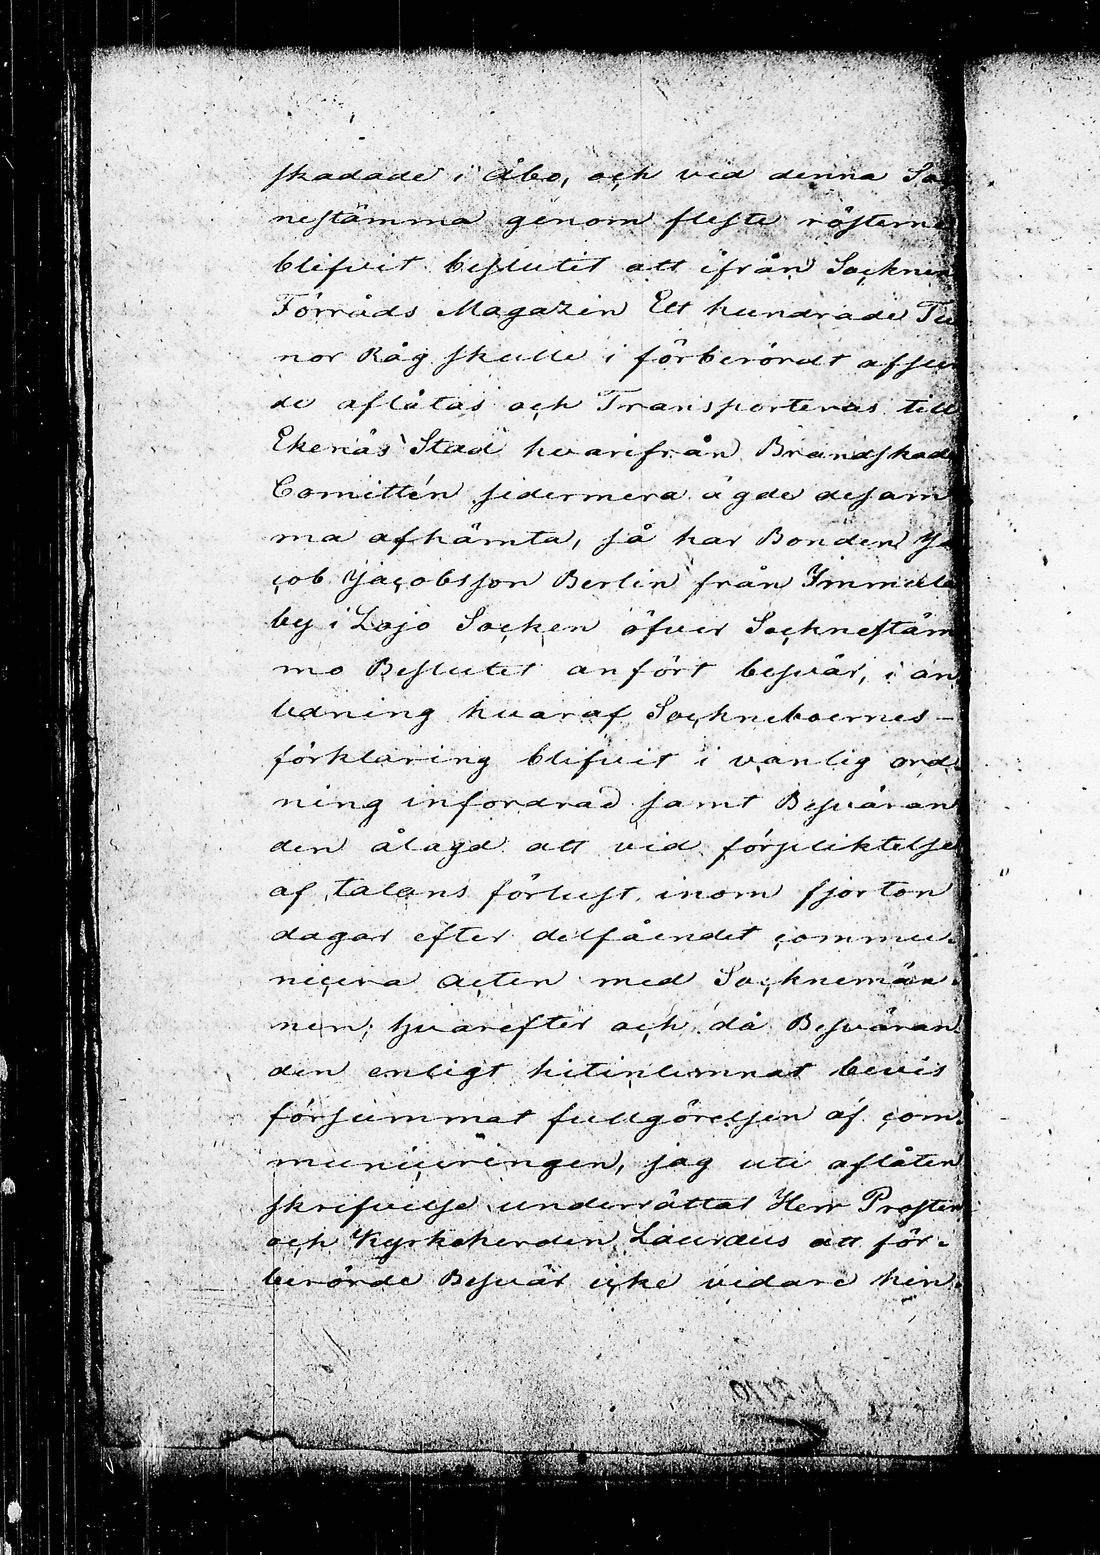 skadade i Åbo, och vid denna Soc
nestämma genom fleste rösterne
blifvit beslutit att ifrån Socknens
Förråds Magazin Ett hundrade Tu
nor Råg skulle i förberördt afseen
de aflåtas och Transporteras till
Ekenäs Stad hvarifrån Brandskade
Comittén sidermera ägde desam
ma afhämta, så har Bonden Ja
cob Jacobsson Berlin från Immula
by i Lojo Socken öfver Sockneståm
mo Beslutet anfört besvär, i an
ledning hvaraf Sockneboernes
förklaring blifvit i vanlig ord-
ning infordrad samt Besväran
den ålagd att vid förpliktelse
af talans förlust inom fjorton
dagar efter delfåendet commu-
nicera acten med Socknemän-
nen; hvarefter och då Besväran
den enligt hitinlemnat bevis
försummat fullgörelsen af com-
municeringen, jag uti aflåten
skrifvelse underrättat Herr Prosten
och Kyrkoherden Lauræus att för-
berörde Besvär icke vidare hin-